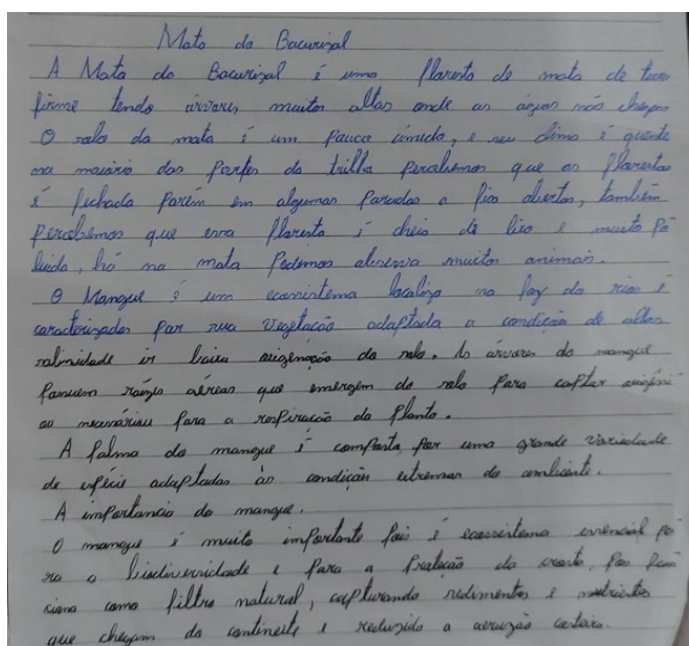 Mata do Bacurizal
A Mata do Bacurizal é uma floresta de mata de terra
firme tendo árvores muitos altas onde as águas não chegam
O solo da mata é um pouco úmido, e seu clima é quente
na maiário das partes da trilha percebemos que as florestas
é fechada porém em algumas paradas a fica abertas, também
percebemos que essa floresta é cheia de lixo e muito po
luida, lá na mata podemos observa muitos animais.
O Mangue é um ecossistema localiza na foz do rios é
caracterizados por sua vegetação adaptada a condição de altas
salinidade baixa oxigenação do solo. As árvores do mangue
possuem raízes aéreas que emergem do solo para captar oxigêni
ou necessárias para a respiração da planta.
A falma do mangue é composta por uma grande variedade
de espécie adaptadas às condição extremas do ambiente.
A importancia do mangue.
O mangue é muito importante pois é ecossistema essencial pa
ra a biodiversidade e para a proteção da costa, pois
ciona como filtro natural, capturando sedimentos e nutrientes
que chegam do continente e reduzido a costeira.